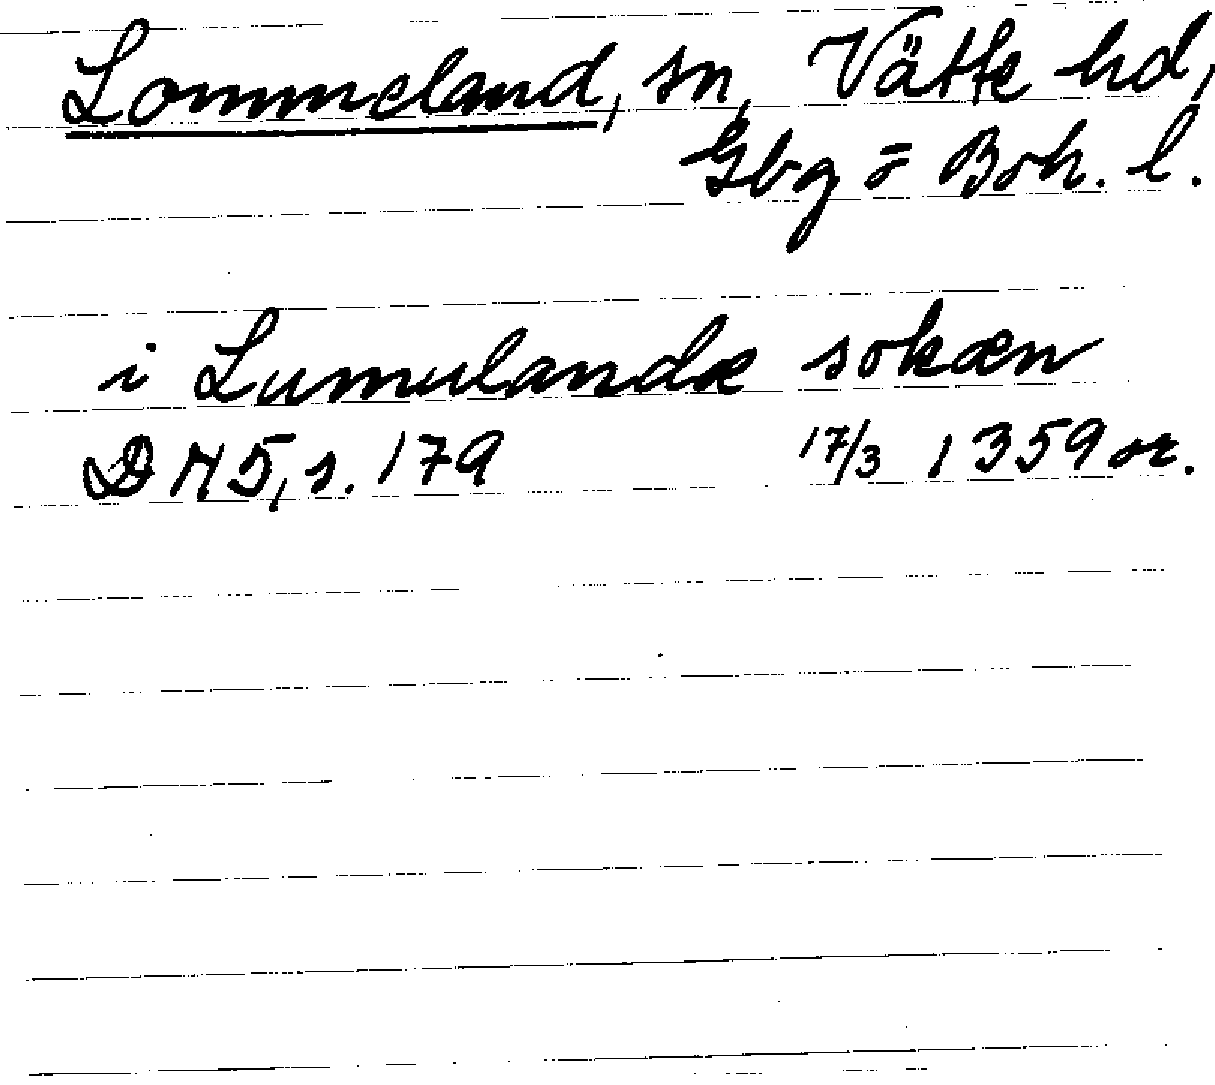 Lommeland, sn, Vätte hd,
Gbg = Boh. l.
i Lumulandæ sokæn
DN 5, s. 179 17/3 1359 or.